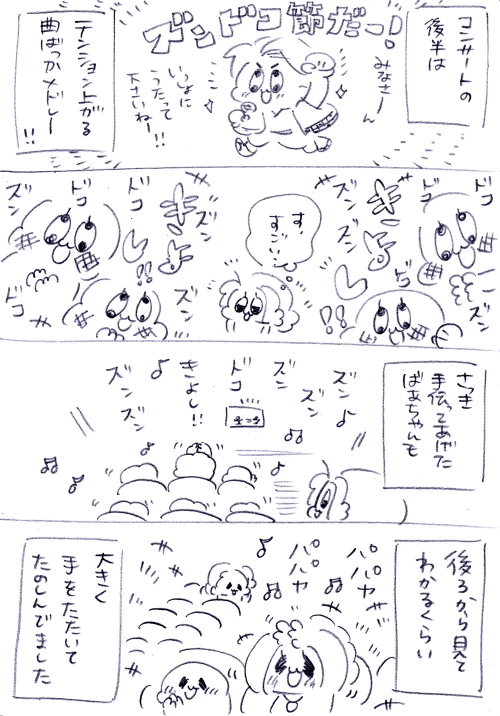 コンサートの
後半は
ズンドコ節だーっ!
みなさーん
いっしょに
うたって
下さいねー!!
テンション上がる
曲ばっかメドレー
!!
ドコ
ズン
ズン
ズン
き・よ・し!!
ドコ
す、
すごい…
ズン
ズン
き・よ・し!!
ドコ
ズン
ドコ
さっき
手伝ってあげた
ばあちゃんも
ズン
ズン
ズン
ドコ
きよし!!
ズン
ズン
後ろから見て
わかるくらい
パパヤ
パパヤ
大きく
手をたたいて
たのしんでました